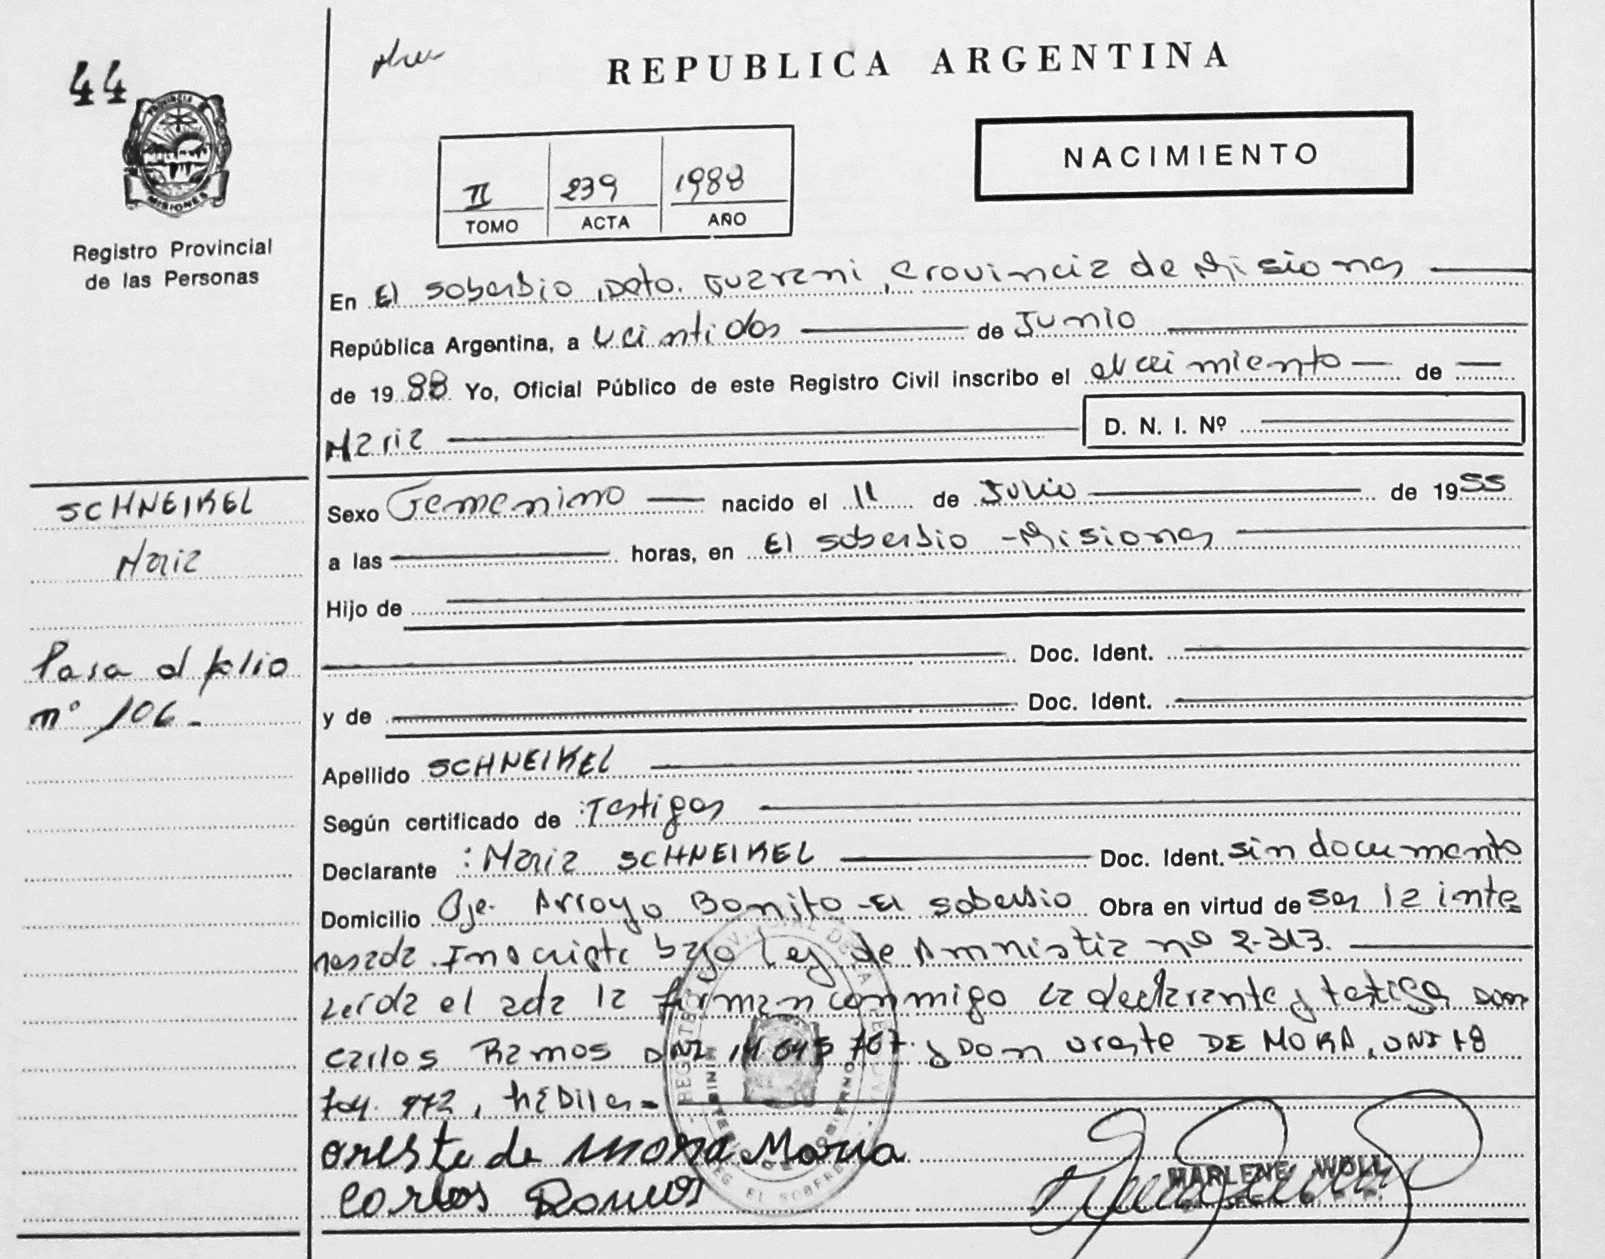 44
REPUBLICA ARGENTINA
PROVINCIA DE
MISIONES
NACIMIENTO
II 239 1988
TOMO ACTA AÑO
Registro Provincial
de las Personas
En El Soberbio, Dpto. Guarani, Provincia de Misiones
República Argentina, a Veintidos de Junio
de 1988 Yo, Oficial Público de este Registro Civil inscribo el Nacimiento de
Maria D. N. I. Nº
SCHNEIKEL
Maria
Pasa al folio
nº 106.-
Sexo Femenino nacido el 11 de Julio de 1955
a las horas, en El Soberbio - Misiones
Hijo de
Doc. Ident.
y de Doc. Ident.
Apellido SCHNEIKEL
Según certificado de : Testigos
Declarante : Maria SCHNEIKEL Doc. Ident. sin documento
Domicilio Pje. Arroyo Bonito - El Soberbio Obra en virtud de ser la inte
resada. Inscripta bajo Ley de Amnistia nº 2.313.
Leida el acta la firman conmigo la declarante y testigos Don
Carlos Ramos DNI 707 y Don Oreste DE MORA, DNI 18
972, hábiles-
oreste de mora Maria
Carlos Ramos
MARLENE WOLL